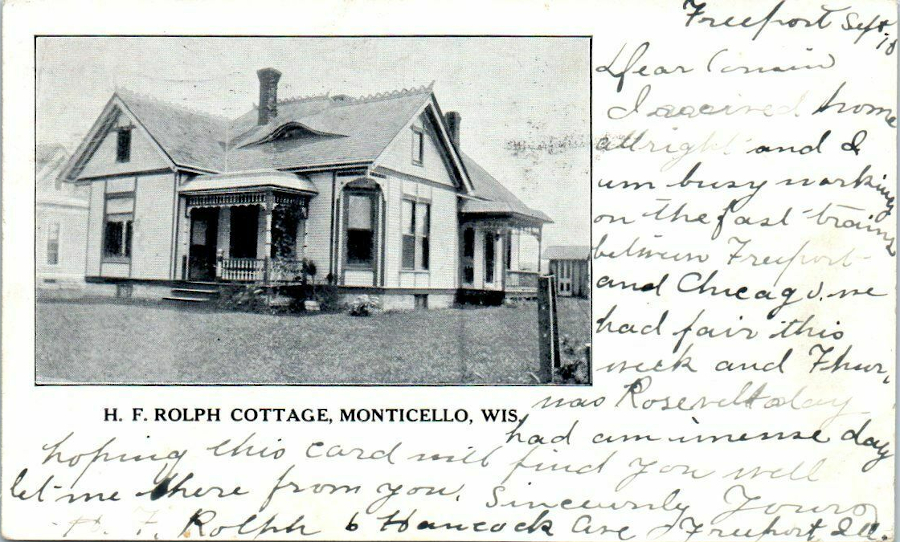 Freeport Sept, 18
Dear Cousin
I received home
allright and I
um busy working
on the fast trains
between Freeport
and Chicago. we
had fair this
week and Thur,
was Rosevelt day
had am imense day
H. F. ROLPH COTTAGE, MONTICELLO, WIS.
hoping this card will find you well
let me there from you. Sincurnly Yours
H. F. Rolph 6 Hancock Ave Freeport, Ill.